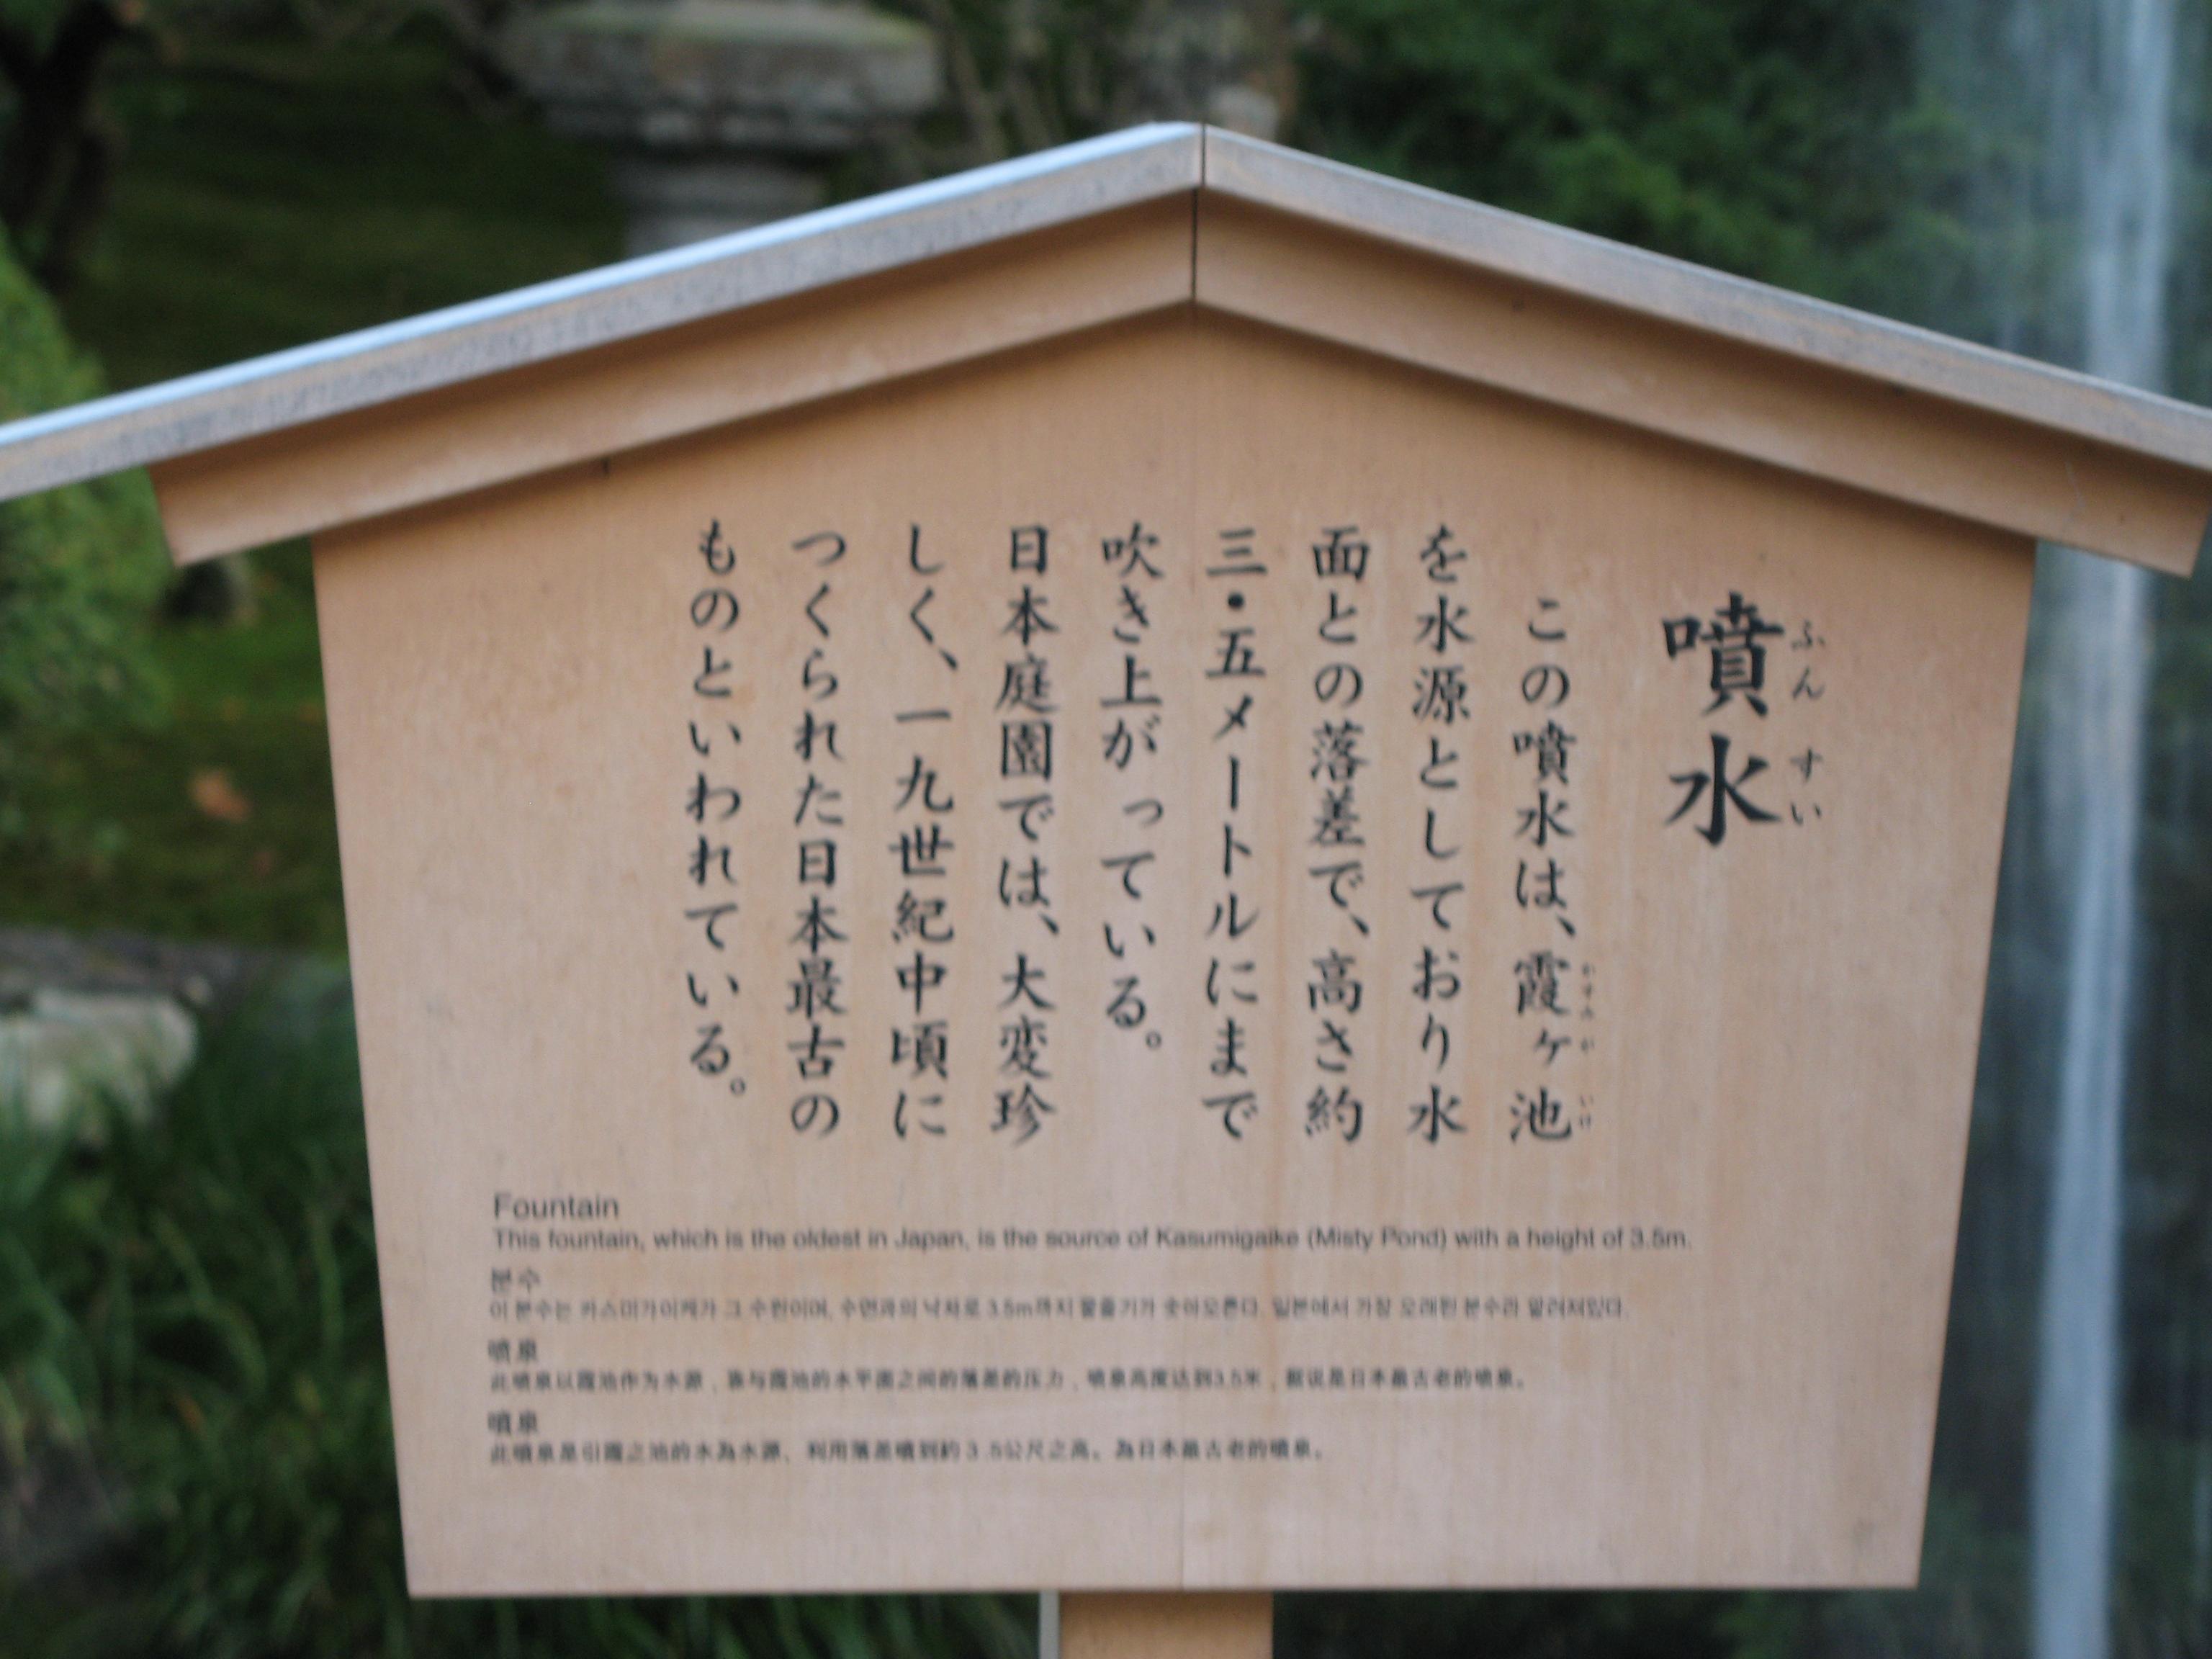 噴水
ふんすい
この噴水は、霞ヶ池
かすみがいけ
を水源としており水
面との落差で、高さ約
三・五メートルにまで
吹き上がっている。
日本庭園では、大変珍
しく、一九世紀中頃に
つくられた日本最古の
ものといわれている。
Fountain
This fountain, which is the oldest in Japan, is the source of Kasumigaike (Misty Pond) with a height of 3.5m.
분수
이 분수는 카스미가이케가 그 수원이며, 수면과의 낙차로 3.5m까지 물줄기가 솟아오른다. 일본에서 가장 오래된 분수라 알려져있다.
喷泉
此喷泉以霞池作为水源，靠与霞池的水平面之间的落差的压力，喷泉高度达到3.5米，据说是日本最古老的喷泉。
噴泉
此噴泉是引霞之池的水為水源、利用落差噴到約3.5公尺之高。為日本最古老的噴泉。